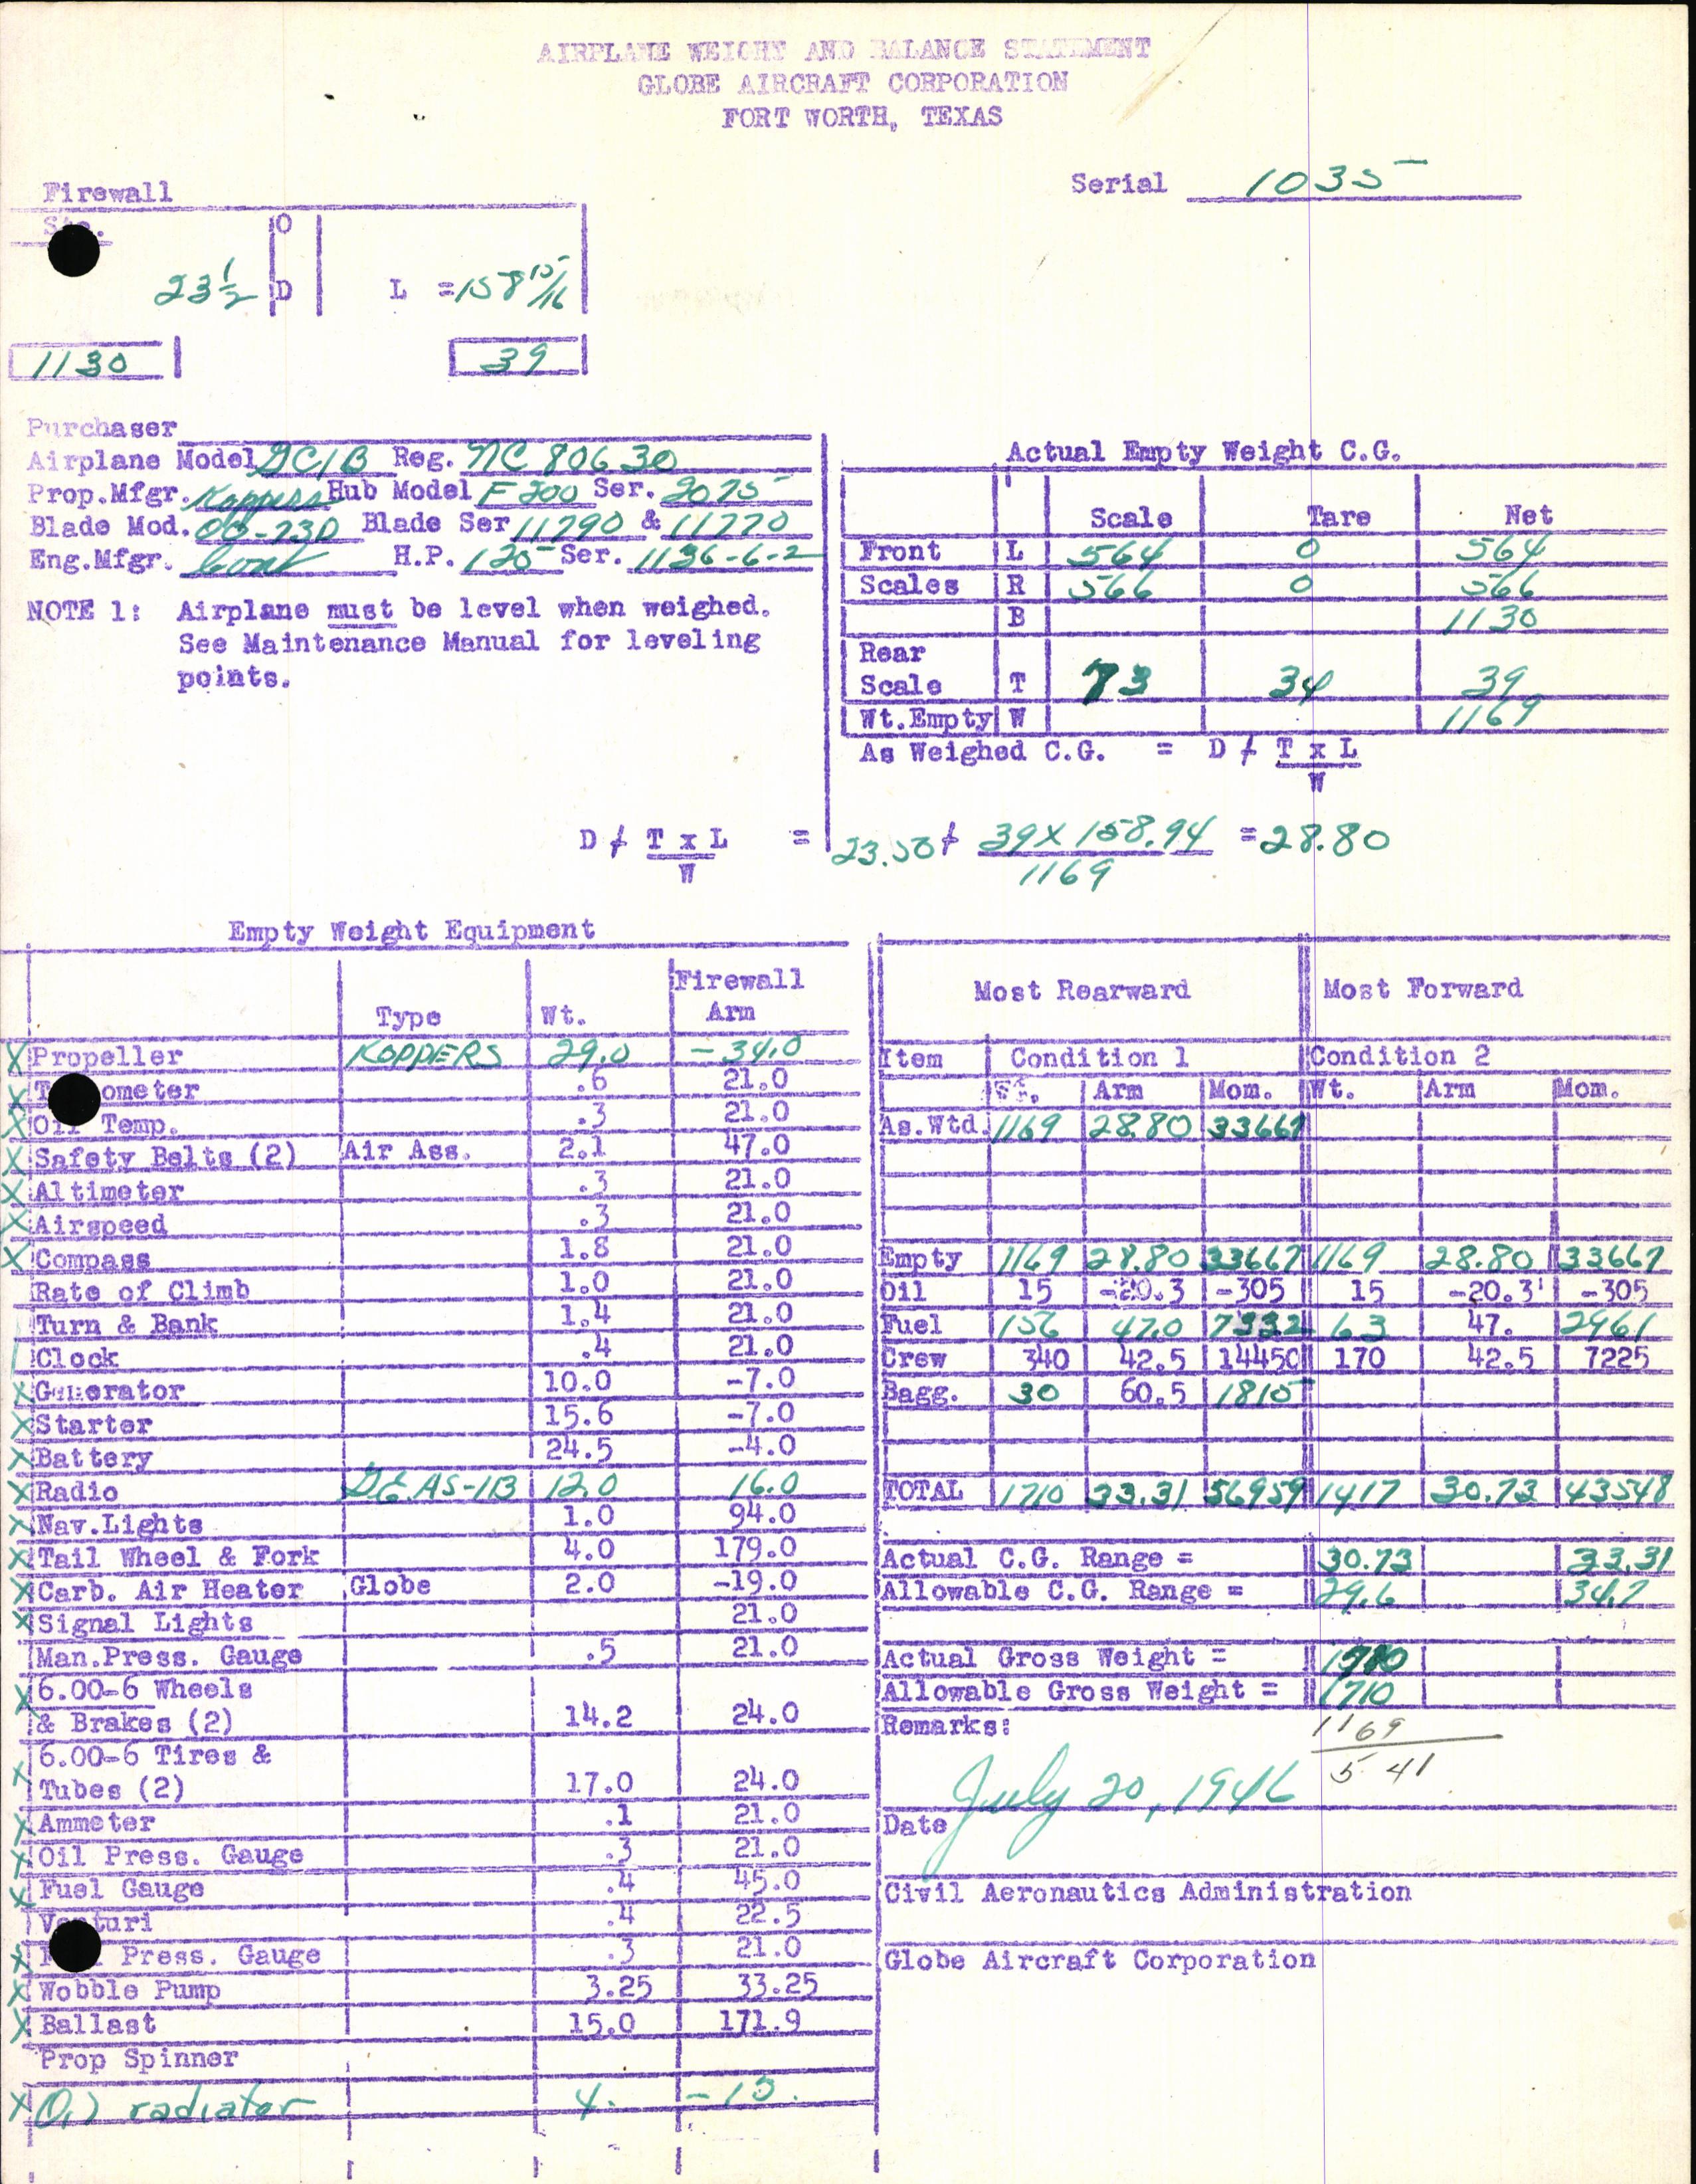 AIRPLANE WEIGHT AND BALANCE STATEMENT
GLOBE AIRCRAFT CORPORATION
FORT WORTH, TEXAS
Serial 1035
Firewall
Sta.
O
23 1/2 D L = 158 15/16
1130 39
Purchaser
Airplane Model GC1B Reg. NC 80630
Prop.Mfgr. Koppers Hub Model F200 Ser. 2075
Blade Mod. 00-73D Blade Ser 11790 & 11770
Eng.Mfgr. Cont H.P. 125 Ser. 1136-6-2
NOTE 1: Airplane must be level when weighed.
See Maintenance Manual for leveling
points.
Actual Empty Weight C.G.
Scale Tare Net
Front L 564 0 564
Scales R 566 0 566
B 1130
Rear
Scale T 73 34 39
Wt.Empty W 1169
As Weighed C.G. = D ∤ T x L
W
D ∤ T x L = 23.50 ∤ 39 X 158.94 = 28.80
W 1169
Empty Weight Equipment
Type Wt. Firewall Arm
X Propeller KOPPERS 29.0 -34.0
X T ometer .6 21.0
X Oil Temp. .3 21.0
X Safety Belts (2) Air Ass. 2.1 47.0
X Altimeter .3 21.0
X Airspeed .3 21.0
X Compass 1.8 21.0
Rate of Climb 1.0 21.0
Turn & Bank 1.4 21.0
Clock .4 21.0
X Generator 10.0 -7.0
X Starter 15.6 -7.0
X Battery 24.5 -4.0
X Radio G.E. AS-1B 12.0 16.0
X Nav.Lights 1.0 94.0
X Tail Wheel & Fork 4.0 179.0
X Carb. Air Heater Globe 2.0 -19.0
X Signal Lights 21.0
Man.Press. Gauge .5 21.0
X 6.00-6 Wheels
& Brakes (2) 14.2 24.0
X 6.00-6 Tires &
Tubes (2) 17.0 24.0
X Ammeter .1 21.0
X Oil Press. Gauge .3 21.0
X Fuel Gauge .4 45.0
Venturi .4 22.5
X Press. Gauge .3 21.0
X Wobble Pump 3.25 33.25
X Ballast 15.0 171.9
Prop Spinner
X Oil radiator 4. -13.
Most Rearward Most Forward
Item Condition 1 Condition 2
Wt. Arm Mom. Wt. Arm Mom.
As.Wtd. 1169 28.80 33667
Empty 1169 28.80 33667 1169 28.80 33667
Oil 15 -20.3 -305 15 -20.3 -305
Fuel 156 47.0 7332 63 47. 2961
Crew 340 42.5 14450 170 42.5 7225
Bagg. 30 60.5 1815
TOTAL 1710 33.31 56959 1417 30.73 43548
Actual C.G. Range = 30.73 33.31
Allowable C.G. Range = 29.6 34.7
Actual Gross Weight = 1710
Allowable Gross Weight = 1710
Remarks: 1169
541
July 20, 1946
Date
Civil Aeronautics Administration
Globe Aircraft Corporation